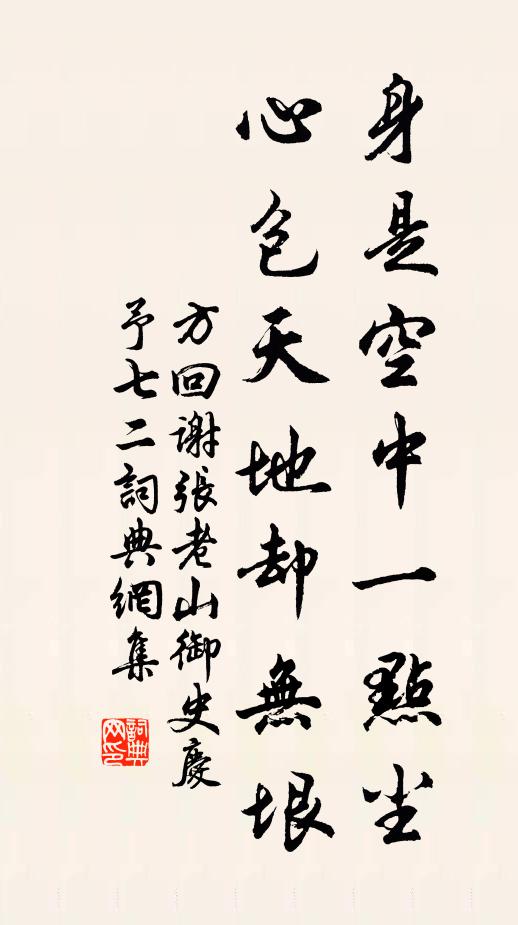 身是空中一點尘
心包天地却無垠
方回谢張老山御史慶
予七二詞典網集
詞典
网印